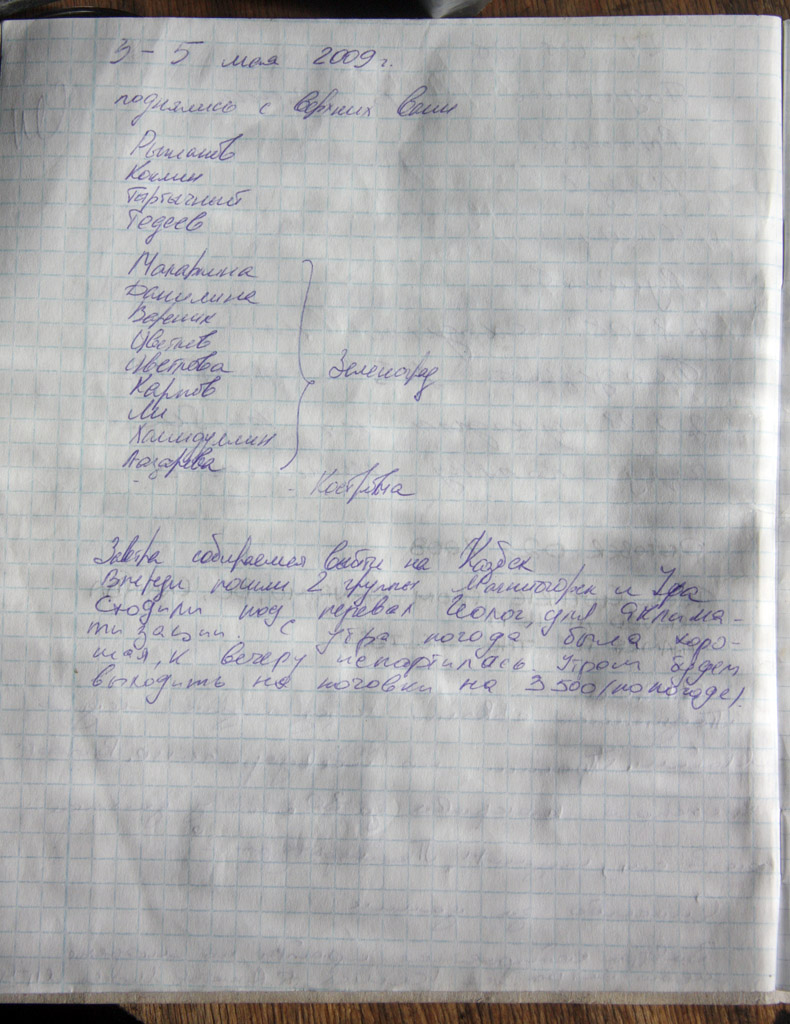 3 - 5 мая 2009 г.
поднялись с верхних Ванн
Рыжанов
Коклин
Тартычный
Тедеев
Макаркина
Данилина
Вареник
Цветков
Цветкова
Карпов
Ли
Хамидуллин
Лазарева
Зеленоград
- Кострома
Завтра собираемся выйти на Казбек
Впереди пошли 2 группы Магнитогорск и Уфа
Сходили под перевал Геолог, для аклима-
тизации. С утра погода была хоро-
шая, к вечеру испортилась. Утром будем
выходить на ночовки на 3500 (по погоде).